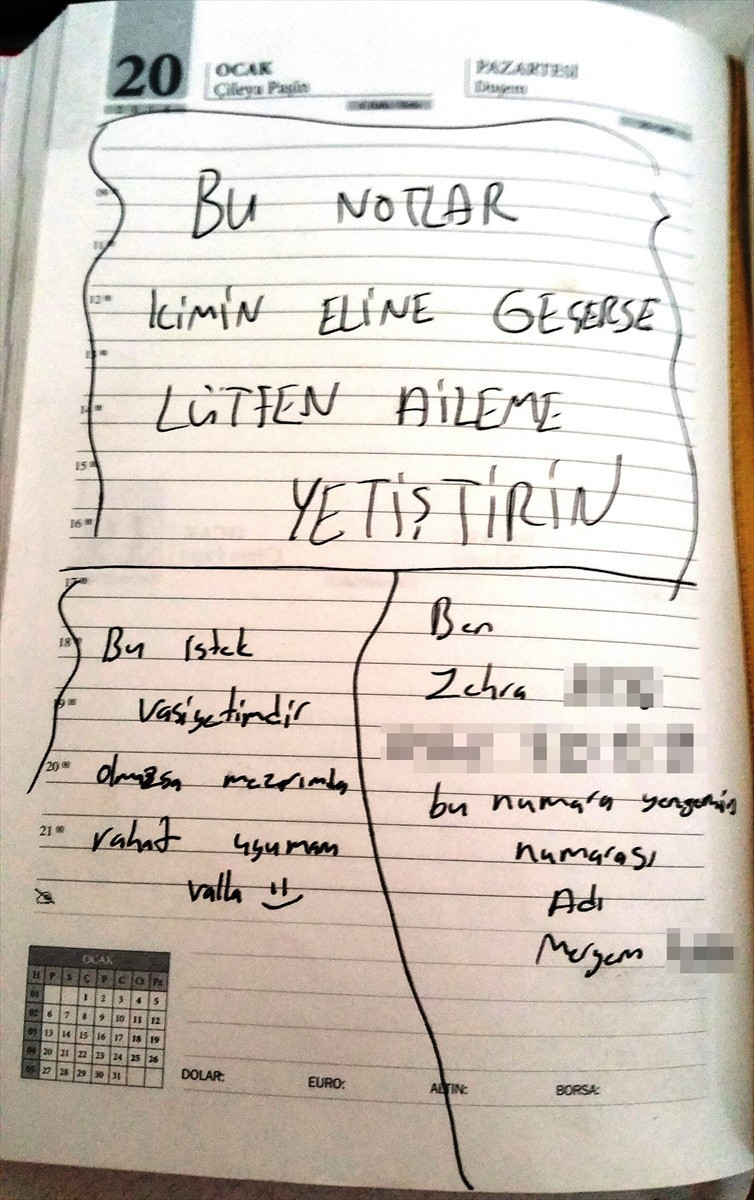 20
OCAK
Çileya Paşîn
PAZARTESİ
Duşem
BU NOTLAR
KİMİN ELİNE GEÇERSE
LÜTFEN AİLEME
YETİŞTİRİN
12 00
15
16 00
18
20 00
21 00
Bu istek
vasiyetimdir
olmazsa mezarımda
rahat uyumam
valla
Ben
Zehra
bu numara yengemin
numarası
Adı
Meryem
OCAK
H P S Ç P C Ct Pz
01 1 2 3 4 5
02 6 7 8 9 10 11 12
03 13 14 15 16 17 18 19
04 20 21 22 23 24 25 26
05 27 28 29 30 31
DOLAR: EURO: ALTIN: BORSA: